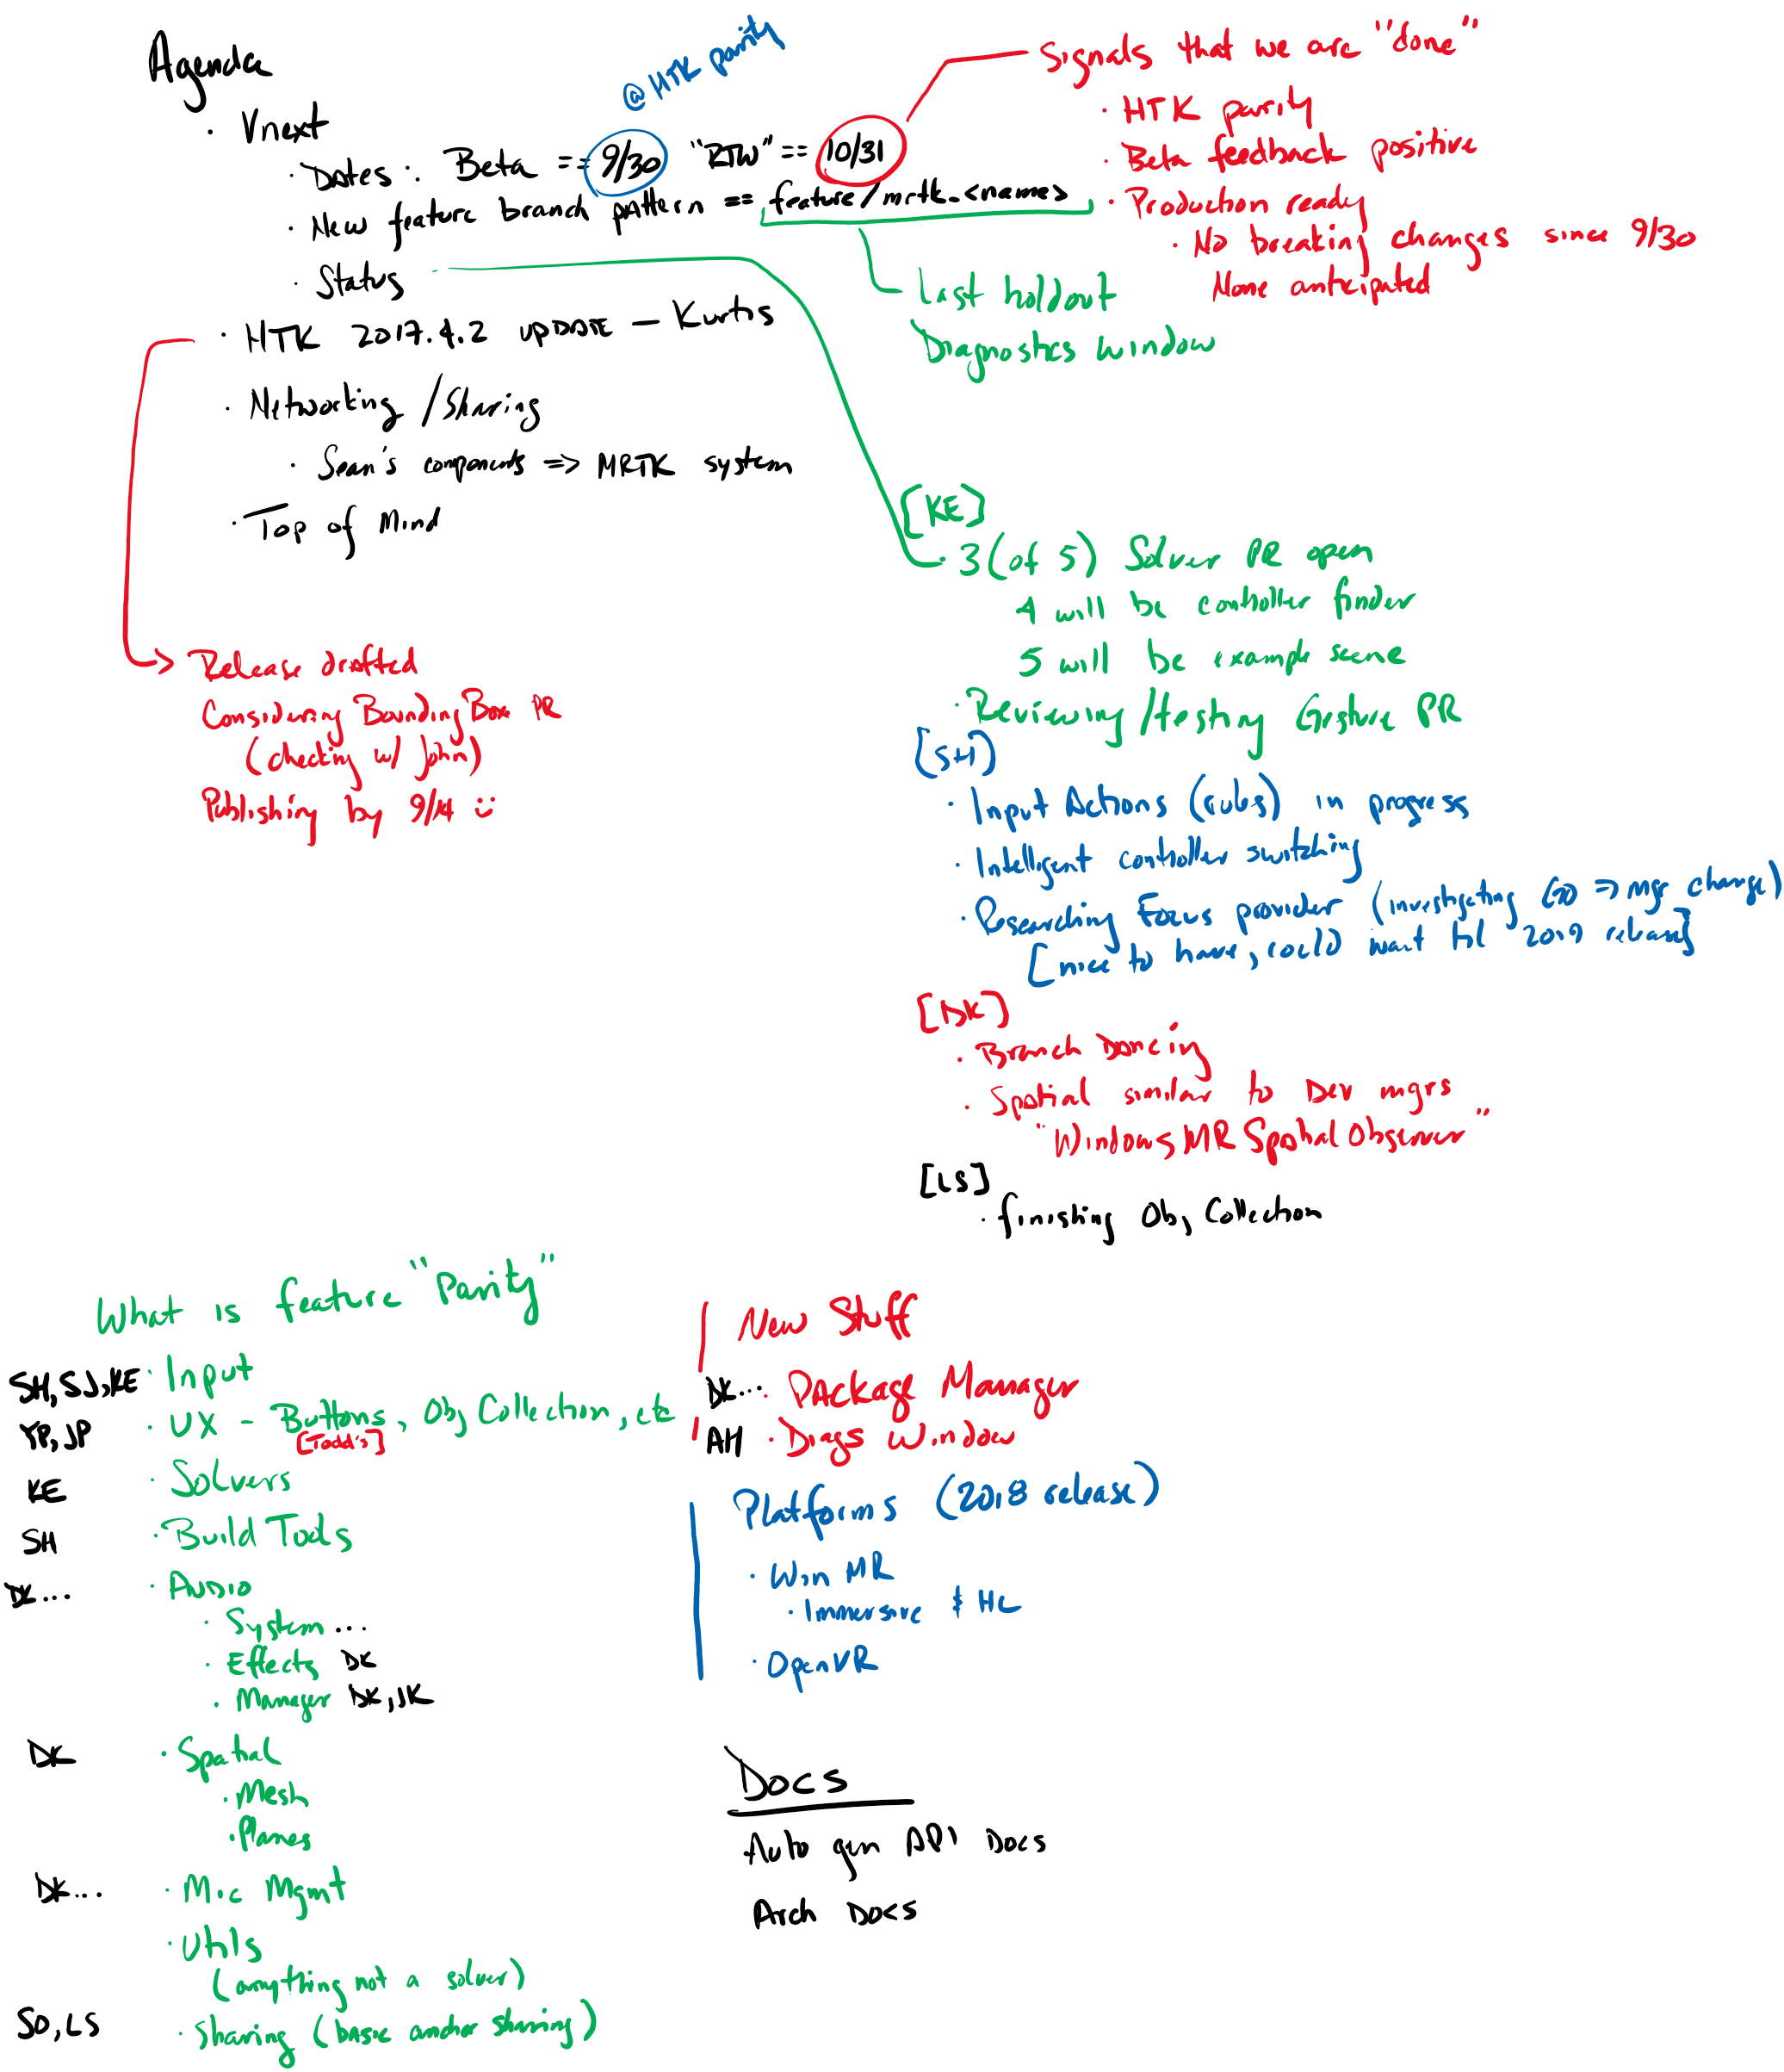 Agenda
· Vnext
@ HTK parity
· Dates: Beta == 9/30 "RTW" == 10/31
· New feature branch pattern == feature/mrtk_<name>
· Status
· HTK 2017.4.2 update — Kurtis
· Networking / Sharing
· Sean's components => MRTK system
· Top of Mind
Signals that we are "done"
· HTK parity
· Beta feedback positive
· Production ready
· No breaking changes since 9/30
None anticipated
Last holdout
Diagnostics window
Release drafted
Considering Bounding Box PR
(checking w/ John)
Publishing by 9/14 :)
[KE]
· 3 (of 5) Solver PR open
4 will be controller finder
5 will be example scene
· Reviewing/testing Gesture PR
[SH]
· Input Actions (rules) in progress
· Intelligent controller switching
· Researching Focus provider (investigating GO => mgr change)
[nice to have, could wait til 2019 release]
[DK]
· Branch Dancing
· Spatial similar to Dev mgrs
"WindowsMRSpatialObserver"
[LS]
· finishing Obj Collection
What is feature "Parity"
SH, SJ, KE · Input
YP, JP · UX - Buttons, Obj Collection, etc
[Todd's]
KE · Solvers
SH · Build Tools
DK... · Audio
· System ...
· Effects DK
· Manager DK, JK
DK · Spatial
· Mesh
· Planes
DK... · Mic Mgmt
· Utils
(anything not a solver)
SO, LS · Sharing (basic anchor sharing)
New Stuff
DK... · Package Manager
AM · Diags Window
Platforms (2018 release)
· Win MR
· Immersive & HL
· OpenVR
Docs
Auto gen API Docs
Arch Docs